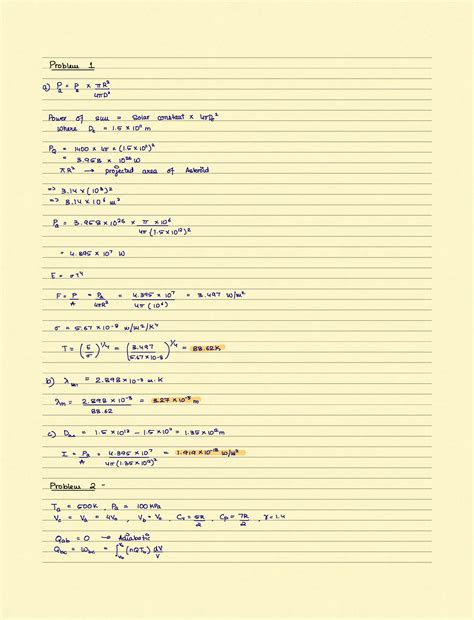 Problem 1
a) P_a = P_s × πR² / 4πD²
Power of sun = Solar constant × 4πD_s²
where D_s = 1.5 × 10¹¹ m
= 3.958 × 10²⁶ W
πR² → projected area of Asteroid
=> 3.14 × (10³)²
=> 3.14 × 10⁶ m²
P_a = 3.958 × 10²⁶ × π × 10⁶ / 4π (1.5 × 10¹²)²
= 4.395 × 10⁷ W
E = σT⁴
F = P/A = P_a / 4πR² = 4.395 × 10⁷ / 4π (10⁶) = 3.497 W/m²
σ = 5.67 × 10⁻⁸ W/m²/K⁴
T = (E/σ)^1/4 = (3.497 / 5.67 × 10⁻⁸)^1/4 = 88.62K
b) = 2.898 × 10⁻³ m.K
λm = 2.898 × 10⁻³ / 88.62 = 3.27 × 10⁻⁵ m
c) = 1.5 × 10¹² - 1.5 × 10¹¹ = 1.35 × 10¹² m
I = P_a / A = 4.395 × 10⁷ / 4π (1.35 × 10¹²)² = 1.919 × 10⁻¹⁸ W/m²
Problem 2 -
T_a = 500K, P_a = 100 KPa
V_c = V_a = 4V_b, C_v = 5R/2, C_p = 7R/2, γ = 1.4
Q_ab = 0 → Adiabatic
Q_bc = W_bc = ∫ dV/V